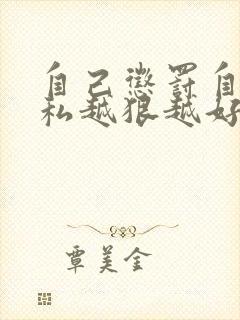 自己惩罚自
私越狠越好
覃美金